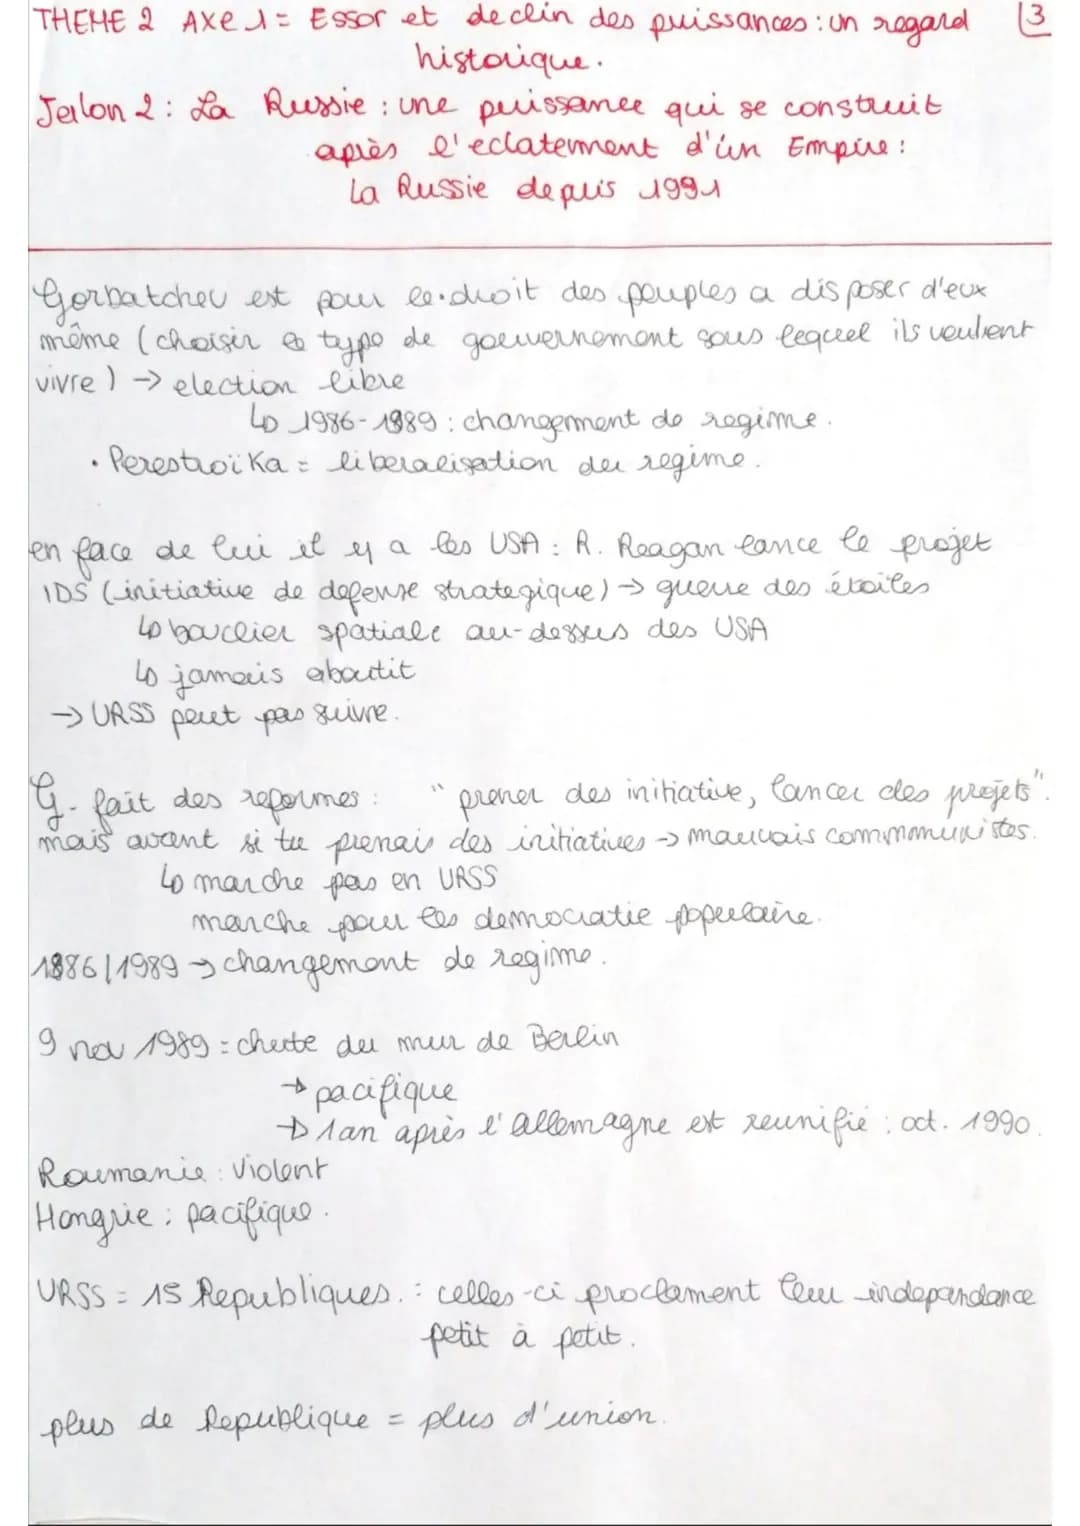 THEME 2 AXE 1 = Essor et declin des puissances : un regard 3
historique.
Jalon 2 : La Russie : une puissance qui se construit
après l'eclatement d'un Empire :
La Russie depuis 1991
Gorbatchev est pour le droit des peuples a disposer d'eux
même (choisir le type de gouvernement sous lequel ils veulent
vivre) → election libre
↳ 1986-1989 : changement de regime.
• Perestroïka = liberalisation du regime.
en face de lui il y a les USA : R. Reagan lance le projet
IDS (initiative de defense strategique) → guerre des étoiles
↳ bouclier spatiale au-dessus des USA
↳ jamais aboutit
→ URSS peut pas suivre.
G. fait des reformes : "prener des initiative, lancer des projets".
mais avant si tu prenais des initiatives → mauvais commmunistes.
↳ marche pas en URSS
marche pour les democratie populaire.
1986/1989 → changement de regime.
9 nov 1989 : chute du mur de Berlin
→ pacifique
→ 1 an après l'allemagne est reunifié : oct. 1990.
Roumanie : Violent
Hongrie : pacifique.
URSS = 15 Republiques. : celles-ci proclament leur independance
petit à petit.
plus de Republique = plus d'union.